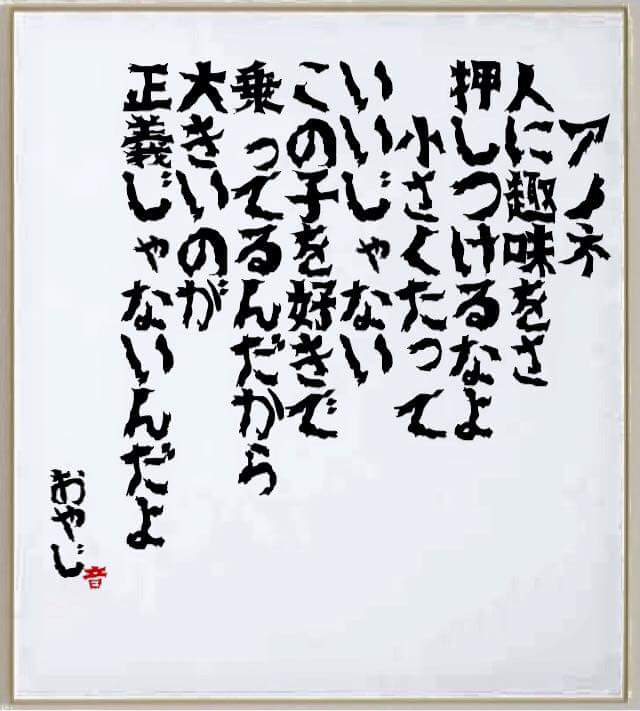 アノネ
人に趣味をさ
押しつけるなよ
小さくたって
いいじゃない
この子を好きで
乗ってるんだから
大きいのが
正義じゃないんだよ
おやじ
音